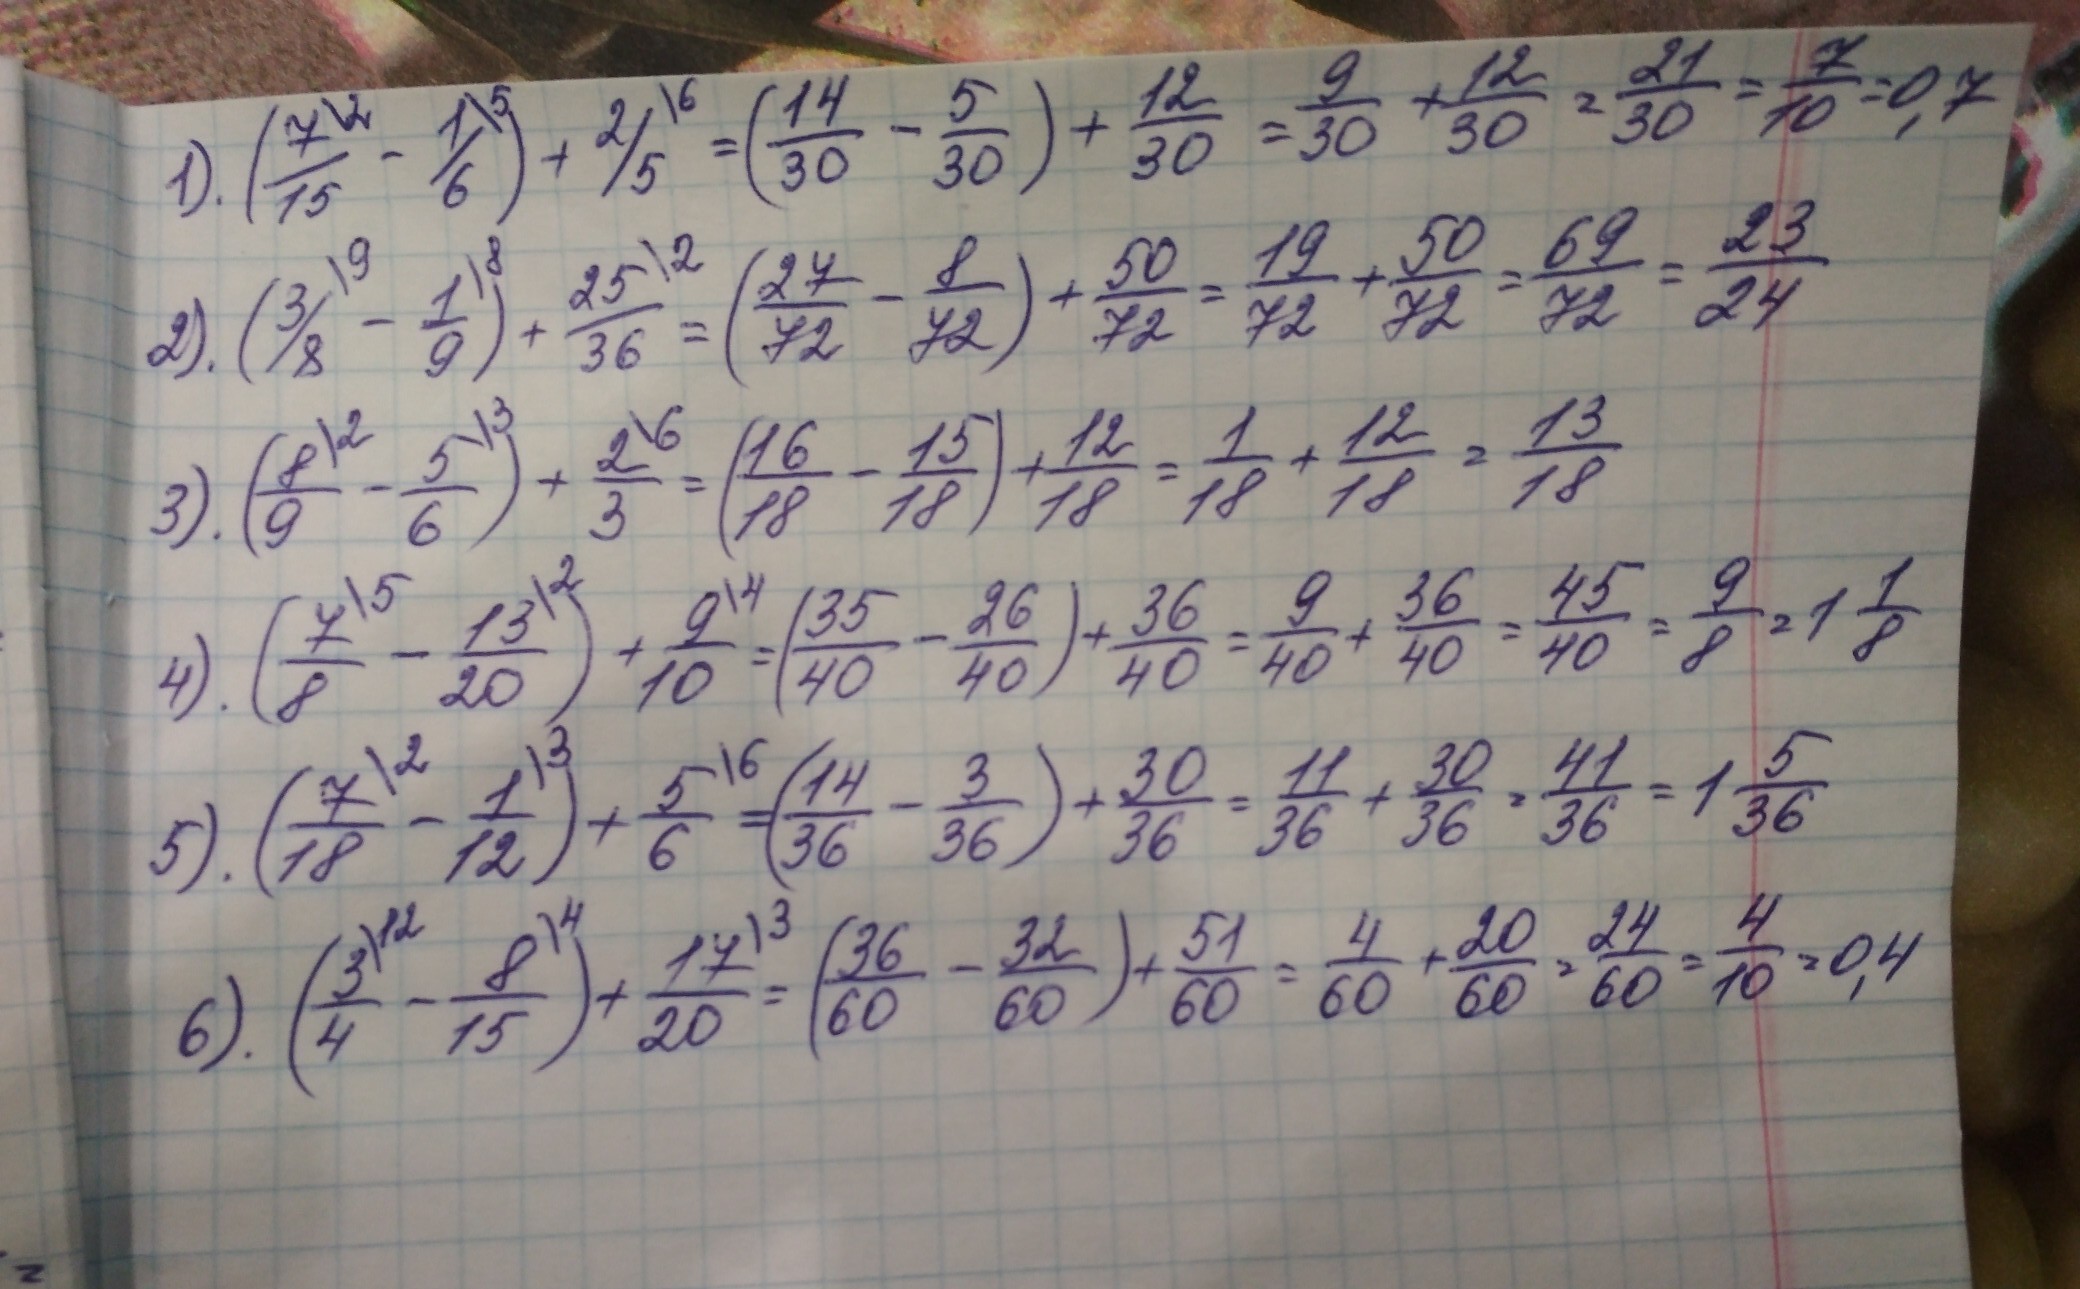 1). (7\2/15 - 1\5/6) + 2/5\6 = (14/30 - 5/30) + 12/30 = 9/30 + 12/30 = 21/30 = 7/10 = 0,7
2). (3/8\9 - 1\8/9) + 25\2/36 = (27/72 - 8/72) + 50/72 = 19/72 + 50/72 = 69/72 = 23/24
3). (8\2/9 - 5\3/6) + 2\6/3 = (16/18 - 15/18) + 12/18 = 1/18 + 12/18 = 13/18
4). (7\5/8 - 13\2/20) + 9\4/10 = (35/40 - 26/40) + 36/40 = 9/40 + 36/40 = 45/40 = 9/8 = 1 1/8
5). (7\2/18 - 1\3/12) + 5\6/6 = (14/36 - 3/36) + 30/36 = 11/36 + 30/36 = 41/36 = 1 5/36
6). (3\12/4 - 8\4/15) + 17\3/20 = (36/60 - 32/60) + 51/60 = 4/60 + 20/60 = 24/60 = 4/10 = 0,4